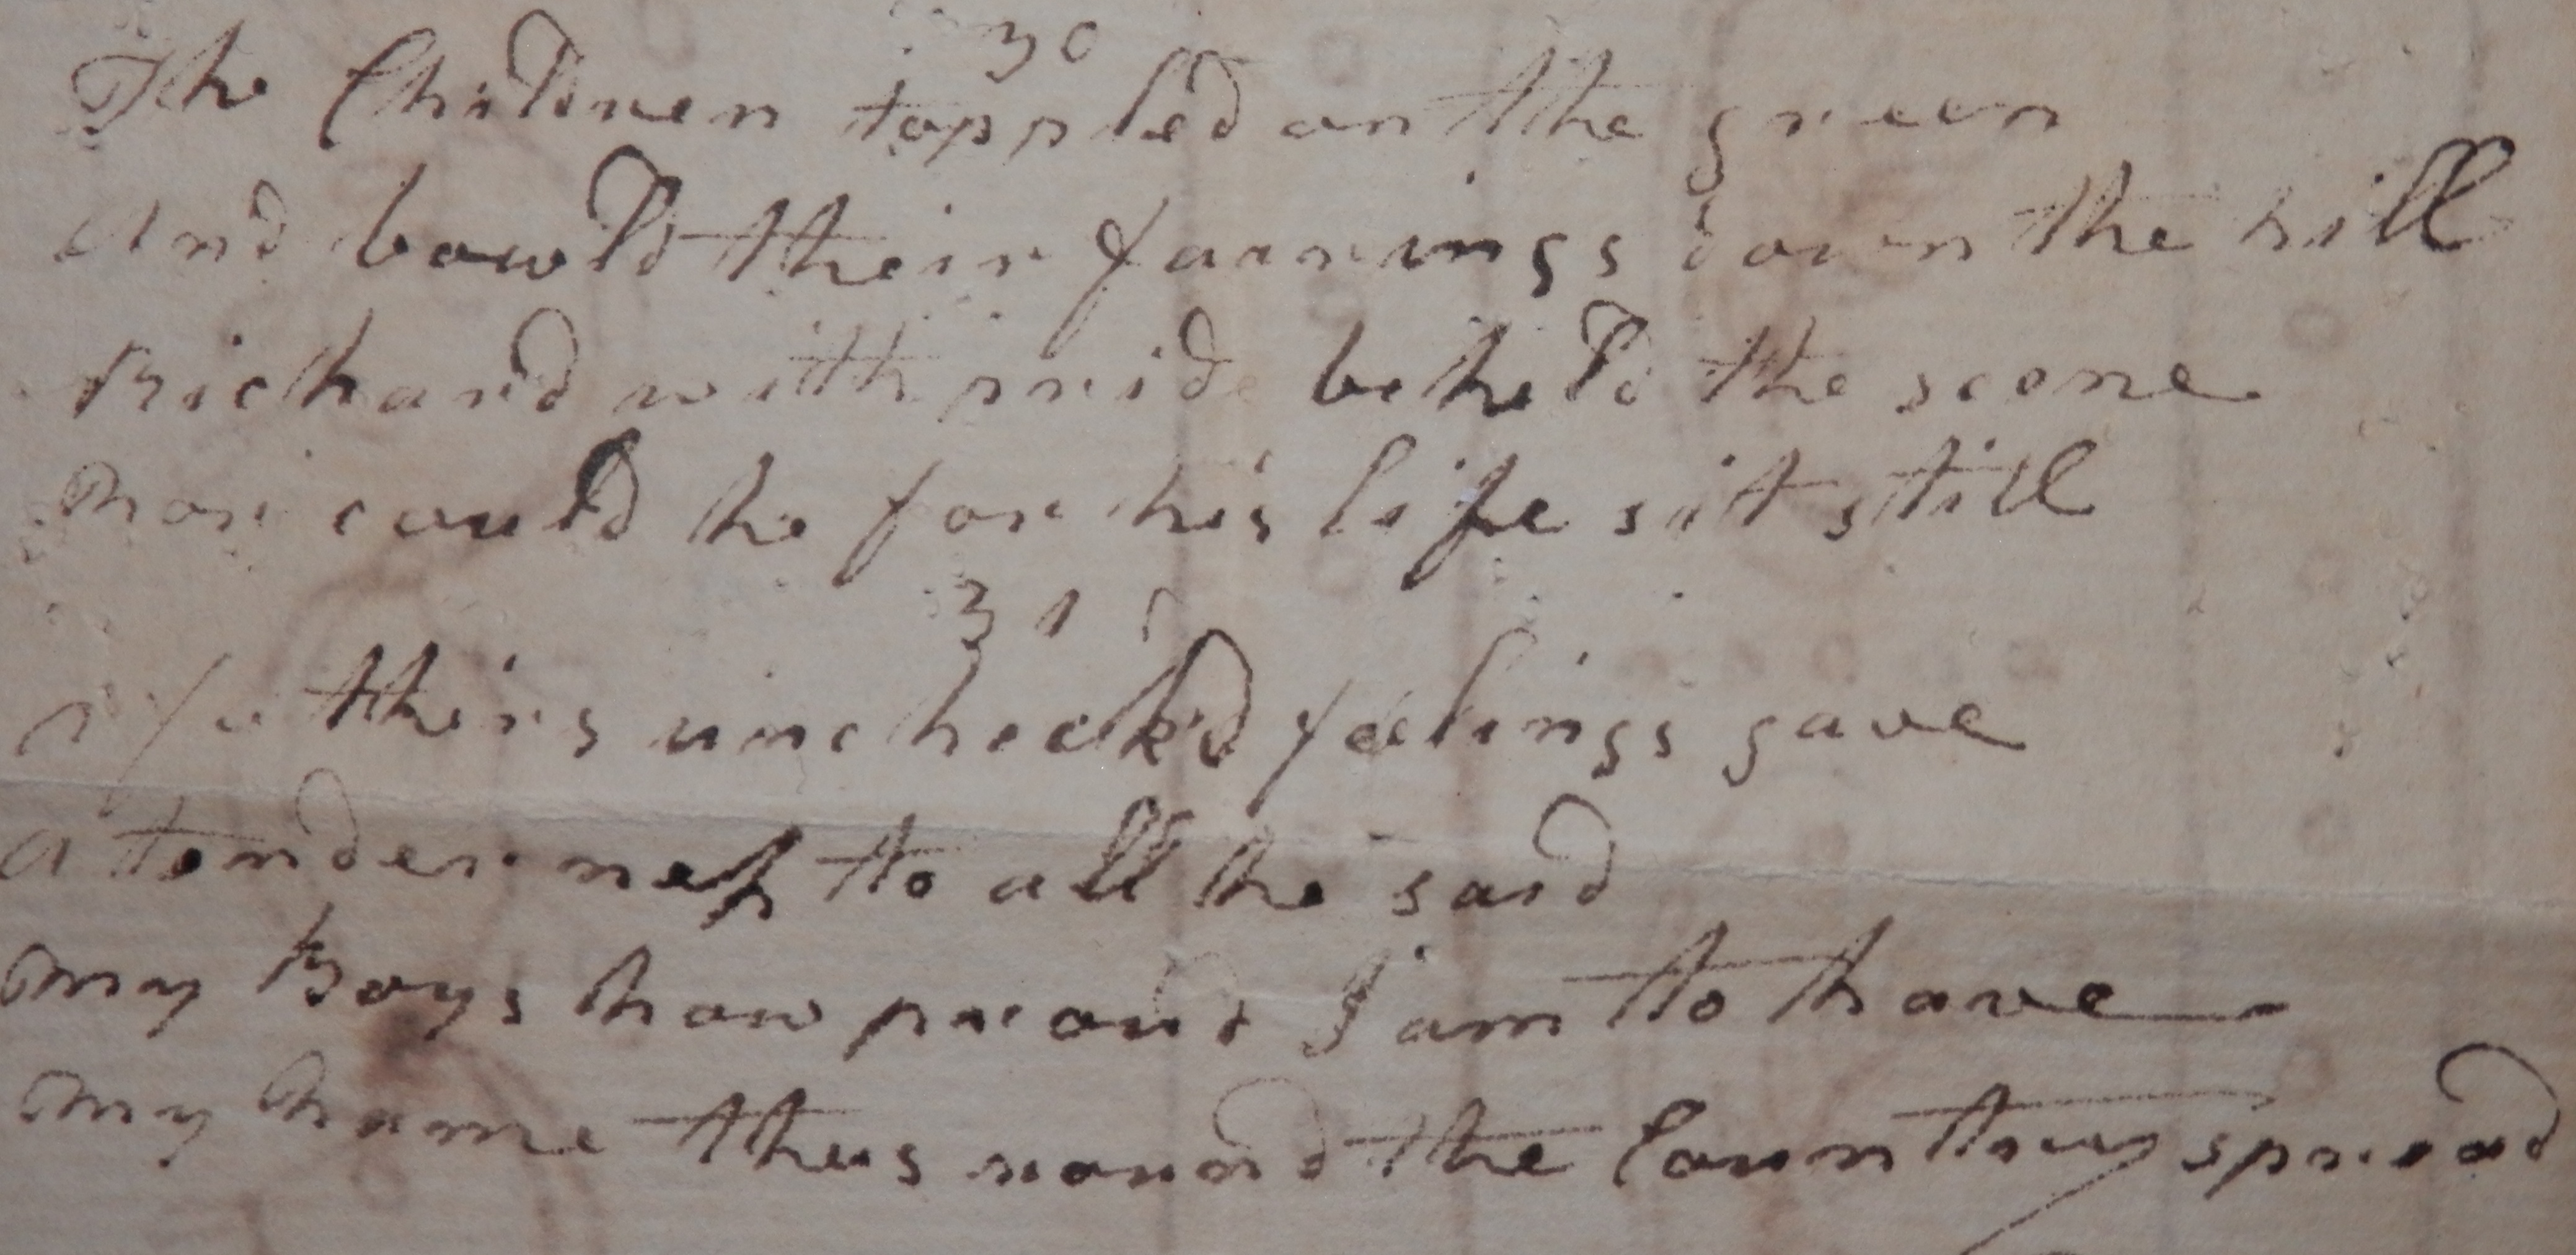 30
The Children toppled on the green
And bowld their fairings down the hill
Richard with pride beheld the scene
Nor could he for his life sit still
31
A fathers uncheck'd feelings gave
A tenderness to all he said
My Boys how proud I am to have
My Name thus round the Country spread